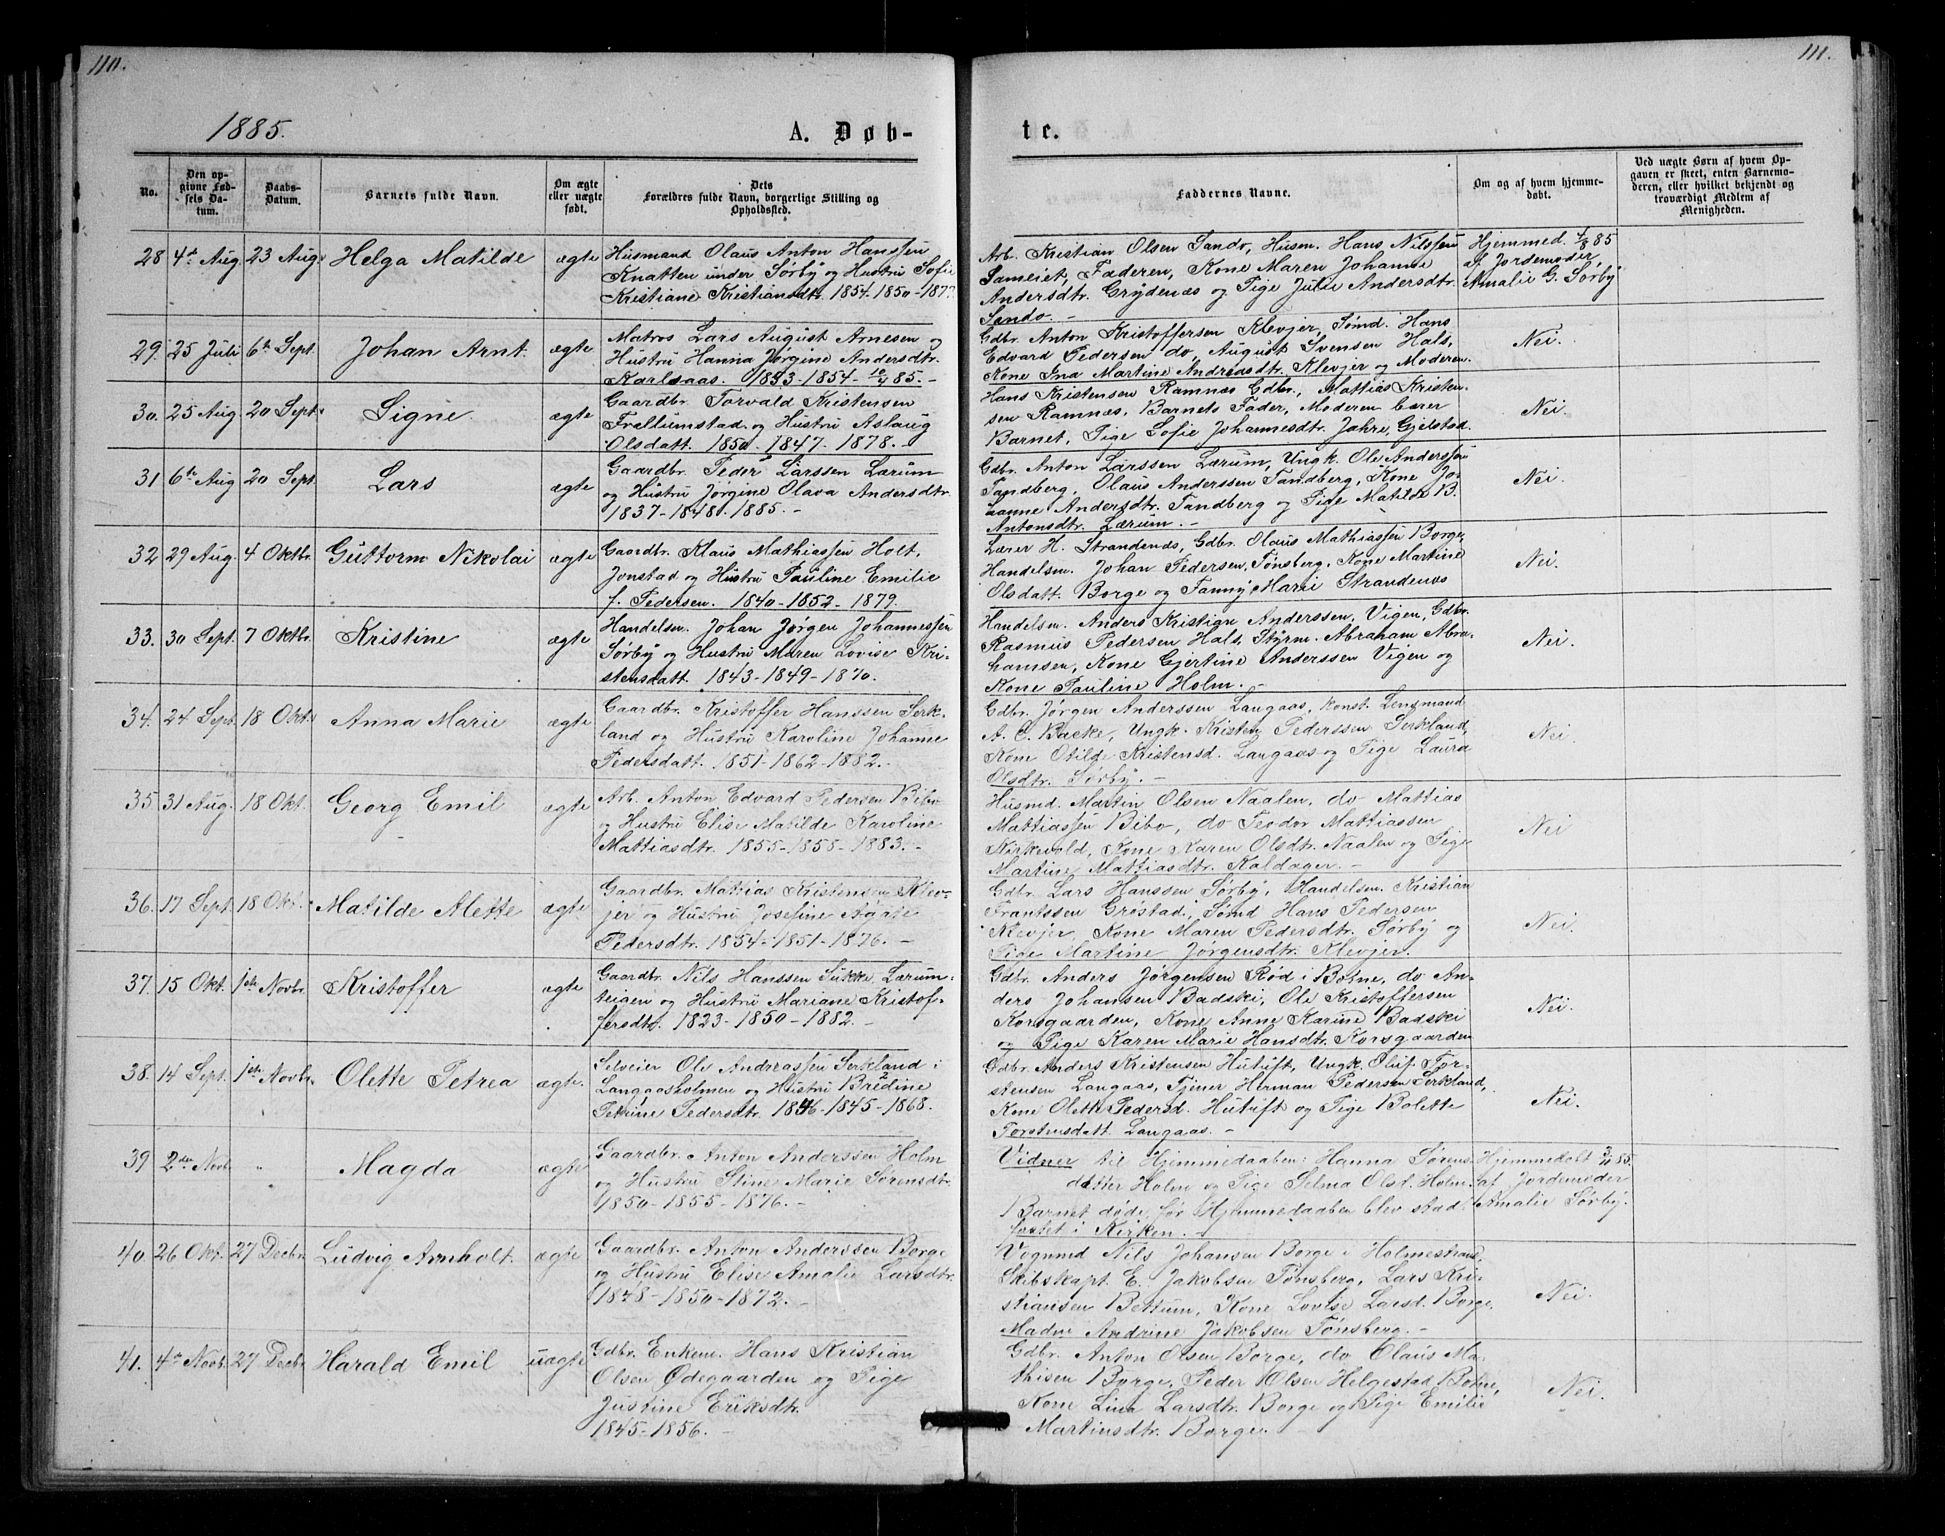 110.
1885.
A. Døb-
No.
Den op-
givne Fød-
sels Da-
tum.
Daabs-
Datum.
Barnets fulde Navn.
Om ægte
eller uægte
født.
Dets
Forældres fulde Navn, borgerlige Stilling og
Opholdssted.
28 4de Aug 23 Aug. Helga Matilde ægte
Husmand Olaus Anton Hanssen
Knatten under Sørby og Hustru Sofie
Kristiane Kristiansdtr. 1854. 1850 - 187
29. 25 Juli 6te Sept. Johan Arnt. ægte
Matros Lars August Arnesen og
Hustru Hanna Jørgine Andersdtr.
Karlsaas. 1853 - 1854 - 10/4 85. -
30. 25 Aug. 20 Sept. Signe ægte
Gaardbr. Torvald Kristensen
Frellumstad og Hustru Aslaug
Olsdatt. 1850. 1847. 1878. -
31 6te Aug 20 Sept. Lars ægte
Gaardbr. Peder Larssen Lærum
og Hustru Jørgine Olava Andersdtr.
1837 - 1848. 1885. -
32 29 Aug. 4 Oktbr. Guttorm Nikolai ægte
Gaardbr. Klaus Mathiassen Holt,
Jonstad og Hustru Pauline Emilie
f. Pedersen. 1840 - 1852 - 1879.
33. 30 Sept. 7 Oktbr. Kristine ægte
Handelsm. Johan Jørgen Johannessen
Sørby og Hustru Maren Lovise Kri-
stensdatt. 1843 - 1849 - 1870.
34. 24 Sept. 18 Okt. Anna Marie ægte
Gaardbr. Kristoffer Hanssen Serk-
land og Hustru Karoline Johanne
Pedersdatt. 1851 - 1862 - 1882. -
35. 31 Aug. 18 Okt. Georg Emil ægte
Arb. Anton Edvard Pedersen Bibo
og Hustru Elise Matilde Karoline
Mattiasdtr. 1855 - 1858 - 1883. -
36. 17 Sept. 18 Okt. Matilde Alette ægte
Gaardbr. Mattias Kristensen Klev-
jer og Hustru Josefine Agate
Pedersdtr. 1854 - 1851 - 1876. -
37. 15 Okt. 1ste Novbr. Kristoffer ægte
Gaardbr. Nils Hanssen Sukke Lærum-
teigen og Hustru Mariane Kristof-
fersdtr. 1823 - 1850 - 1882. -
38. 14 Sept. 1ste Novbr. Olette Petrea ægte.
Selveier Ole Andreassen Serkland i
Langaasholmen og Hustru Bredine
Petrine Pedersdtr. 1846 - 1845 - 1868.
39 2den Novb. " Magda ægte
Gaardbr. Anton Anderssen Holm
og Hustru Stine Marie Sørensdtr.
1850 - 1855 - 1876. -
40. 26 Okt. 27 Decbr. Ludvig Arnholt. ægte
Gaardbr. Anton Anderssen Borge
og Hustru Elise Amalie Larsdtr.
1848 - 1850 - 1872. -
41. 4de Novb. 27 Decbr. Harald Emil uægte
Gdbr. Enkem. Hans Kristian
Olsen Ødegaarden og Pige
Justine Eriksdtr.
1845 - 1856. -
111.
te.
Faddernes Navne.
Om og af hvem hjemme-
døbt.
Ved uægte Børn af hvem Op-
gaven er skeet, enten Barnemo-
deren, eller hvilket bekjendt og
troværdigt Medlem af
Menigheden.
Arb. Kristian Olsen Sando, Husm. Hans Nilssen
Sameiet, Faderen, Kone Maren Johanne
Andersdtr. Grydenæs og Pige Julie Andersdtr.
Sando. -
Hjemmed. 4/8 85
af Jordemoder
Amalie G. Sørby
Gdbr. Anton Kristoffersen Klevjer, Sømd. Hans
Edvard Pedersen do, August Svensen Hals,
Kone Ina Martine Andreasdtr. Klevjer og Moderen.
Nei.
Hans Kristensen Ramnæs Gdbr., Mattias Kristen-
sen Ramnæs, Barnets Fader, Moderen bærer
Barnet, Pige Sofie Johannesdtr. Jahre, Gjelstad.
Nei.
Gdbr. Anton Larssen Lærum, Ungk. Ole Anderssen
Tandberg, Olaus Anderssen Tandberg, Kone Jo-
hanne Andersdtr. Tandberg og Pige Matilde B.
Antonsdtr. Lærum. -
Nei.
Lærer H. Strandenæs, Gdbr. Olaus Mathiassen Borge,
Handelsm. Johan Pedersen, Tønsberg, Kone Martine
Olsdatt. Borge og Fanny Marie Strandenæs
Nei.
Handelsm. Anders Kristian Anderssen, Vigen, Gdbr.
Rasmus Pedersen Hals, Styrm. Abraham Abra-
hamsen, Kone Gjertine Anderssen Vigen og
Kone Pauline Holm. -
Nei.
Gdbr. Jørgen Anderssen Langaas, Konst. Lensmand
A. C. Backe, Ungk. Kristen Pederssen Serkland,
Kone Otilde Kristensd. Langaas og Pige Laura
Olsdtr. Sørby. -
Nei.
Husmd. Martin Olsen Naalen, do Mattias
Mattiassen Bibo, do Teodor Mattiassen
Nirkevold, Kone Karen Olsdtr. Naalen og Pige
Martine Mattiasdtr. Kaldager. -
Nei
Gdbr. Lars Hanssen Sørby, Handelsm. Kristian
Frantssen Grøstad, Sømd Hans Pedersen
Klevjer, Kone Maren Pedersdtr. Sørby og
Pige Martine Jørgensdtr. Klevjer.
Nei.
Gdbr. Anders Jørgensen Rød i Botne, do An-
ders Johansen Badski, Ole Kristoffersen
Korsgaarden, Kone Anne Karine Badski
og Pige Karen Marie Hansdtr. Korsgaarden
Nei.
Gdbr. Anders Kristensen Hutuft, Ungk. Oluf Tor-
stensen Langaas, Tjener Herman Pedersen Serkland,
Kone Olette Pedersd. Hutuft og Pige Bolette
Torstensdatt. Langaas. -
Nei.
Vidner til Hjemmedaaben: Hanna Sørens-
datter Holm og Pige Selma Olsd. Holm.
Barnet døde, før Hjemmedaaben blev stad-
fæstet i Kirken. -
Hjemmedøbt 3/11 85.
af Jordemoder
Amalie Sørby.
Vognmd Nils Johansen Borge i Holmestrand,
Skibskapt. E. Jakobsen Tønsberg, Lars Kri-
stiansen Bettum, Kone Lovise Larsd. Borge,
Madm Andrine Jakobsen Tønsberg. -
Nei.
Gdbr. Anton Olsen Borge, do Olaus Ma-
thisen Borge, Peder Olsen Helgestad Botne,
Kone Lina Larsdtr. Borge og Pige Emilie
Martinsdtr. Borge. -
Nei.